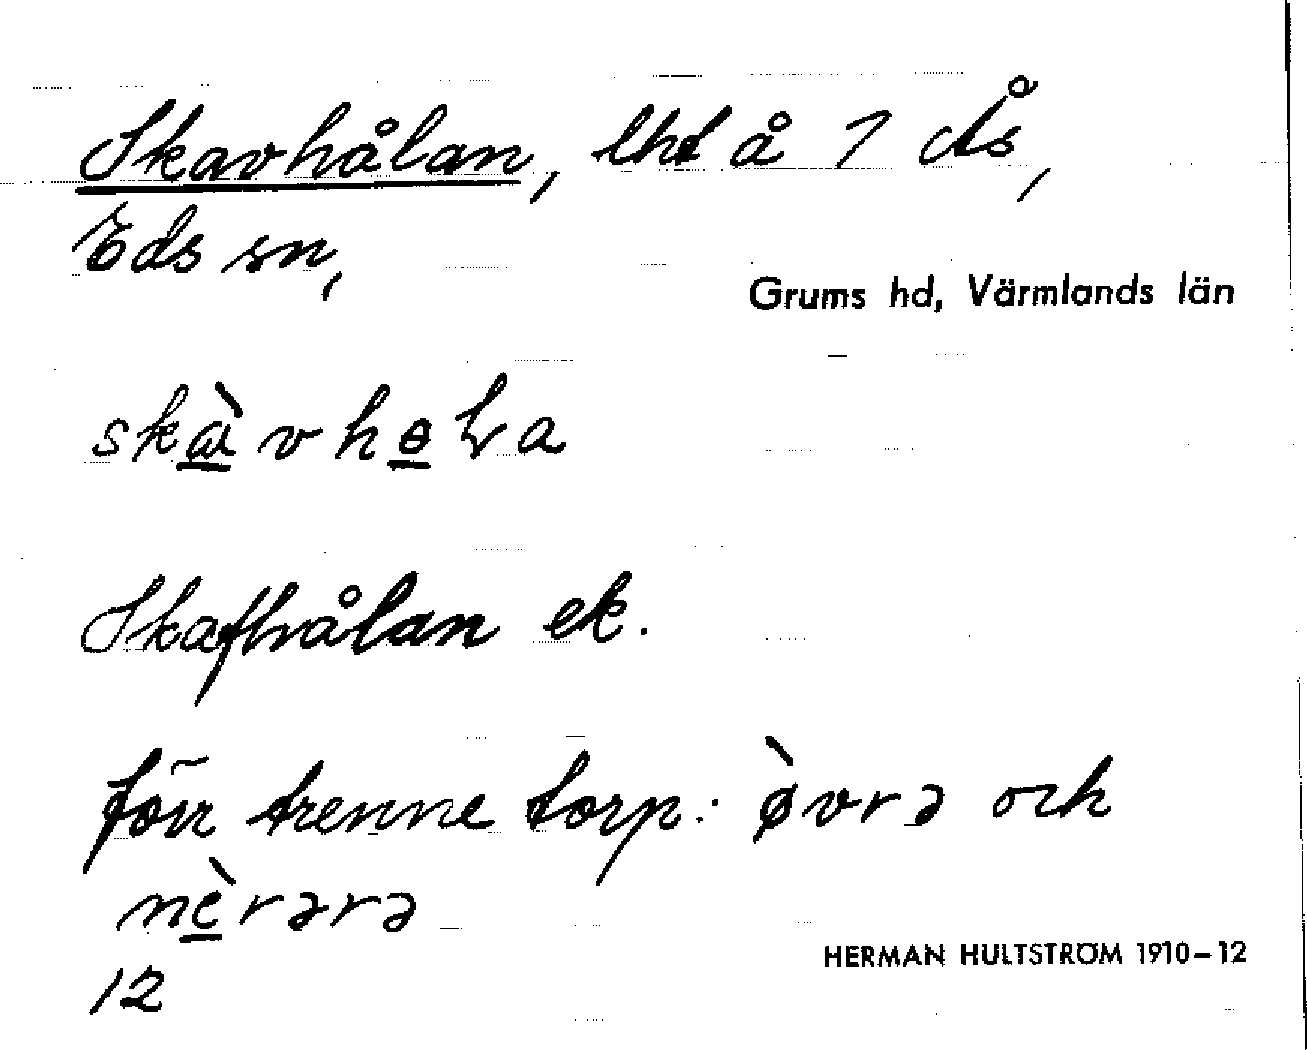 Skavhålan, lht å 1 Ås,
Eds sn,
Grums hd, Värmlands län
skàvhɵla
Skafhålan ek.
förr trenne torp: ø̀vrə och
nèrərə
HERMAN HULTSTRÖM 1910–12
12